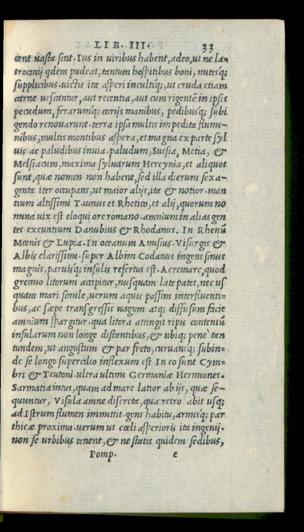 LIB. III. 33
cent uastæ sint. Ius in uiribus habent, adeo, ut ne la-
trocinij quidem pudeat, tantum hospitibus boni, mitesq;
supplicibus. uictu ita asperi incultiq;, ut cruda etiam
carne uescantur, aut recentia, aut cum rigentē in ipsis
pecudum, ferarumq; corijs manibus, pedibusq; subi
gendo renouarunt. terra ipsa multis impedita flumi-
nibus, multis montibus aspera, et magna ex parte syl
uis ac paludibus inuia. paludum, Suesia, Metia, &
Melsiacum, maxima syluarum Hercynia, et aliquot
sunt, quæ nomen non habent, sed illa dierum sexa-
ginta iter occupans, ut maior alijs, ita & notior. mon
tium altissimi Taunus et Rhetico, et alij, quorum no
mina uix est eloqui ore romano. amnium in alias gen
tes exeuntium Danubius & Rhodanus. In Rhenū
Mœnis & Lupia. In oceanum Amisius. Visirgis &
Albis clarissimi. super Albim Codanus ingens sinus
magnis, paruisq; insulis refertus est. Ac re mare, quod
gremio litorum accipitur, nusquam late patet, nec us
quam mari simile, uerum aquis passim interfluenti-
bus, ac sæpe transgressis uagum atq; diffusum facie
amnium spargitur. qua litora attingit ripis contentū
insularum non longe distantibus, & ubiq; pene tan
tundem, it angustum & par freto, curuansq; subin-
de se longo supercilio inflexum est. In eo sunt Cym-
bri & Teutoni. ultra ultimi Germaniæ Hermiones.
Sarmatia intus, quam ad mare latior ab ijs, quæ se-
quuntur, Visula amne discreta, qua retro abit usq;
ad Istrum flumen immittit. gens habitu, armisq; par
thicæ proxima. uerum ut cœli asperioris ita ingenij.
non se urbibus tenent, & ne statis quidem sedibus,
Pomp. e